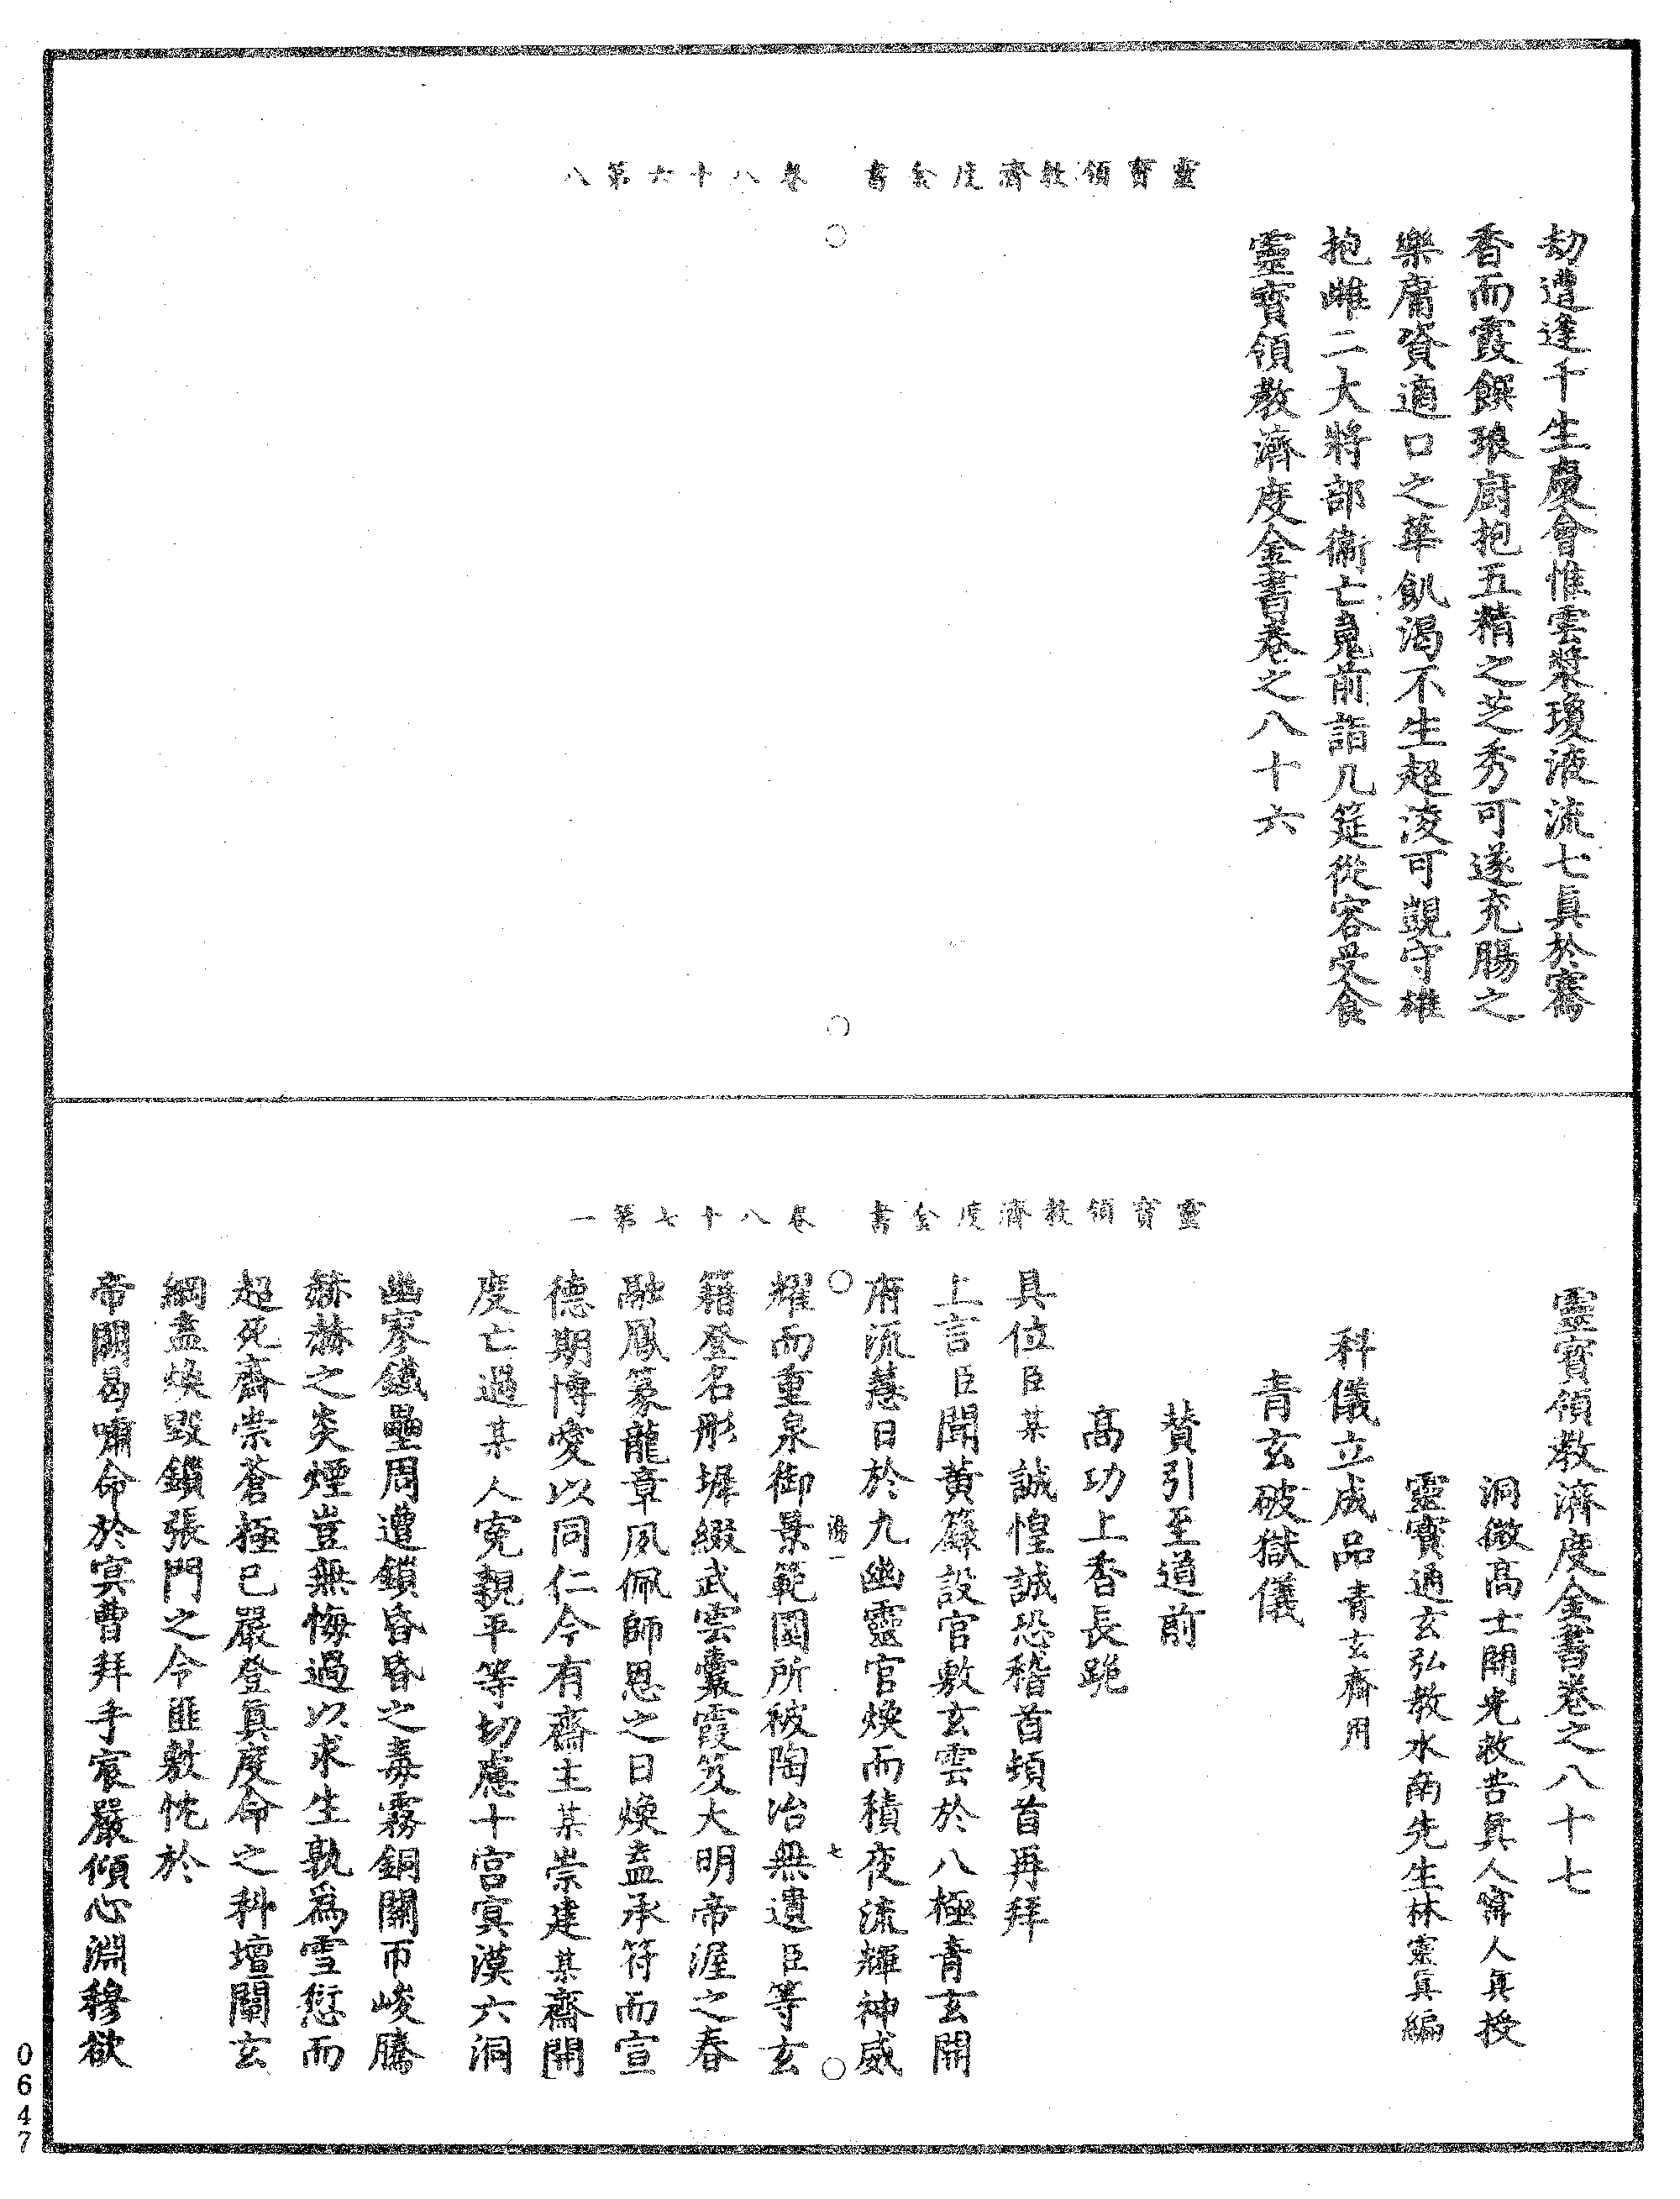 靈寶領教濟度金書　卷八十六第八
劫遭逢千生慶會惟雲漿瓊液流七真於騫
香而霞饌琅廚抱五精之芝秀可遂充腸之
樂庸資適口之華飢渴不生超淩可覬守雄
抱雌二大將部衛亡䰟前詣几筵從容受食
靈寶領教濟度金書卷之八十六
靈寶領教濟度金書　卷八十七第一
靈寶領教濟度金書卷之八十七
洞微高士開光救苦真人甯人真授
靈寶通玄弘教水南先生林靈真編
科儀立成品青玄齋用
青玄破獄儀
贊引至道前
高功上香長跪
具位臣某誠惶誠恐稽首頓首再拜
上言臣聞黃籙設官敷玄雲於八極青玄開
府流慧日於九幽靈官煥而積夜流輝神威
耀而重泉御景範圍所被陶冶無遺臣等玄
湯一　七
籍登名彤墀綴武雲囊霞笈大明帝渥之春
融鳳篆龍章夙佩師恩之日煥盍承符而宣
德期博愛以同仁今有齋主某崇建某齋開
度亡過某人冤親平等切慮十宮冥漠六洞
幽寥鐵壘周遭鎖昏昏之毒霧銅關帀峻騰
赫赫之炎煙豈無悔過以求生孰為雪愆而
超死齋崇蒼極已嚴登真度命之科壇闡玄
綱盍煥毀鎖張門之令匪敷忱於
帝闕曷嘯命於冥曹拜手宸嚴傾心淵穆欲
0647